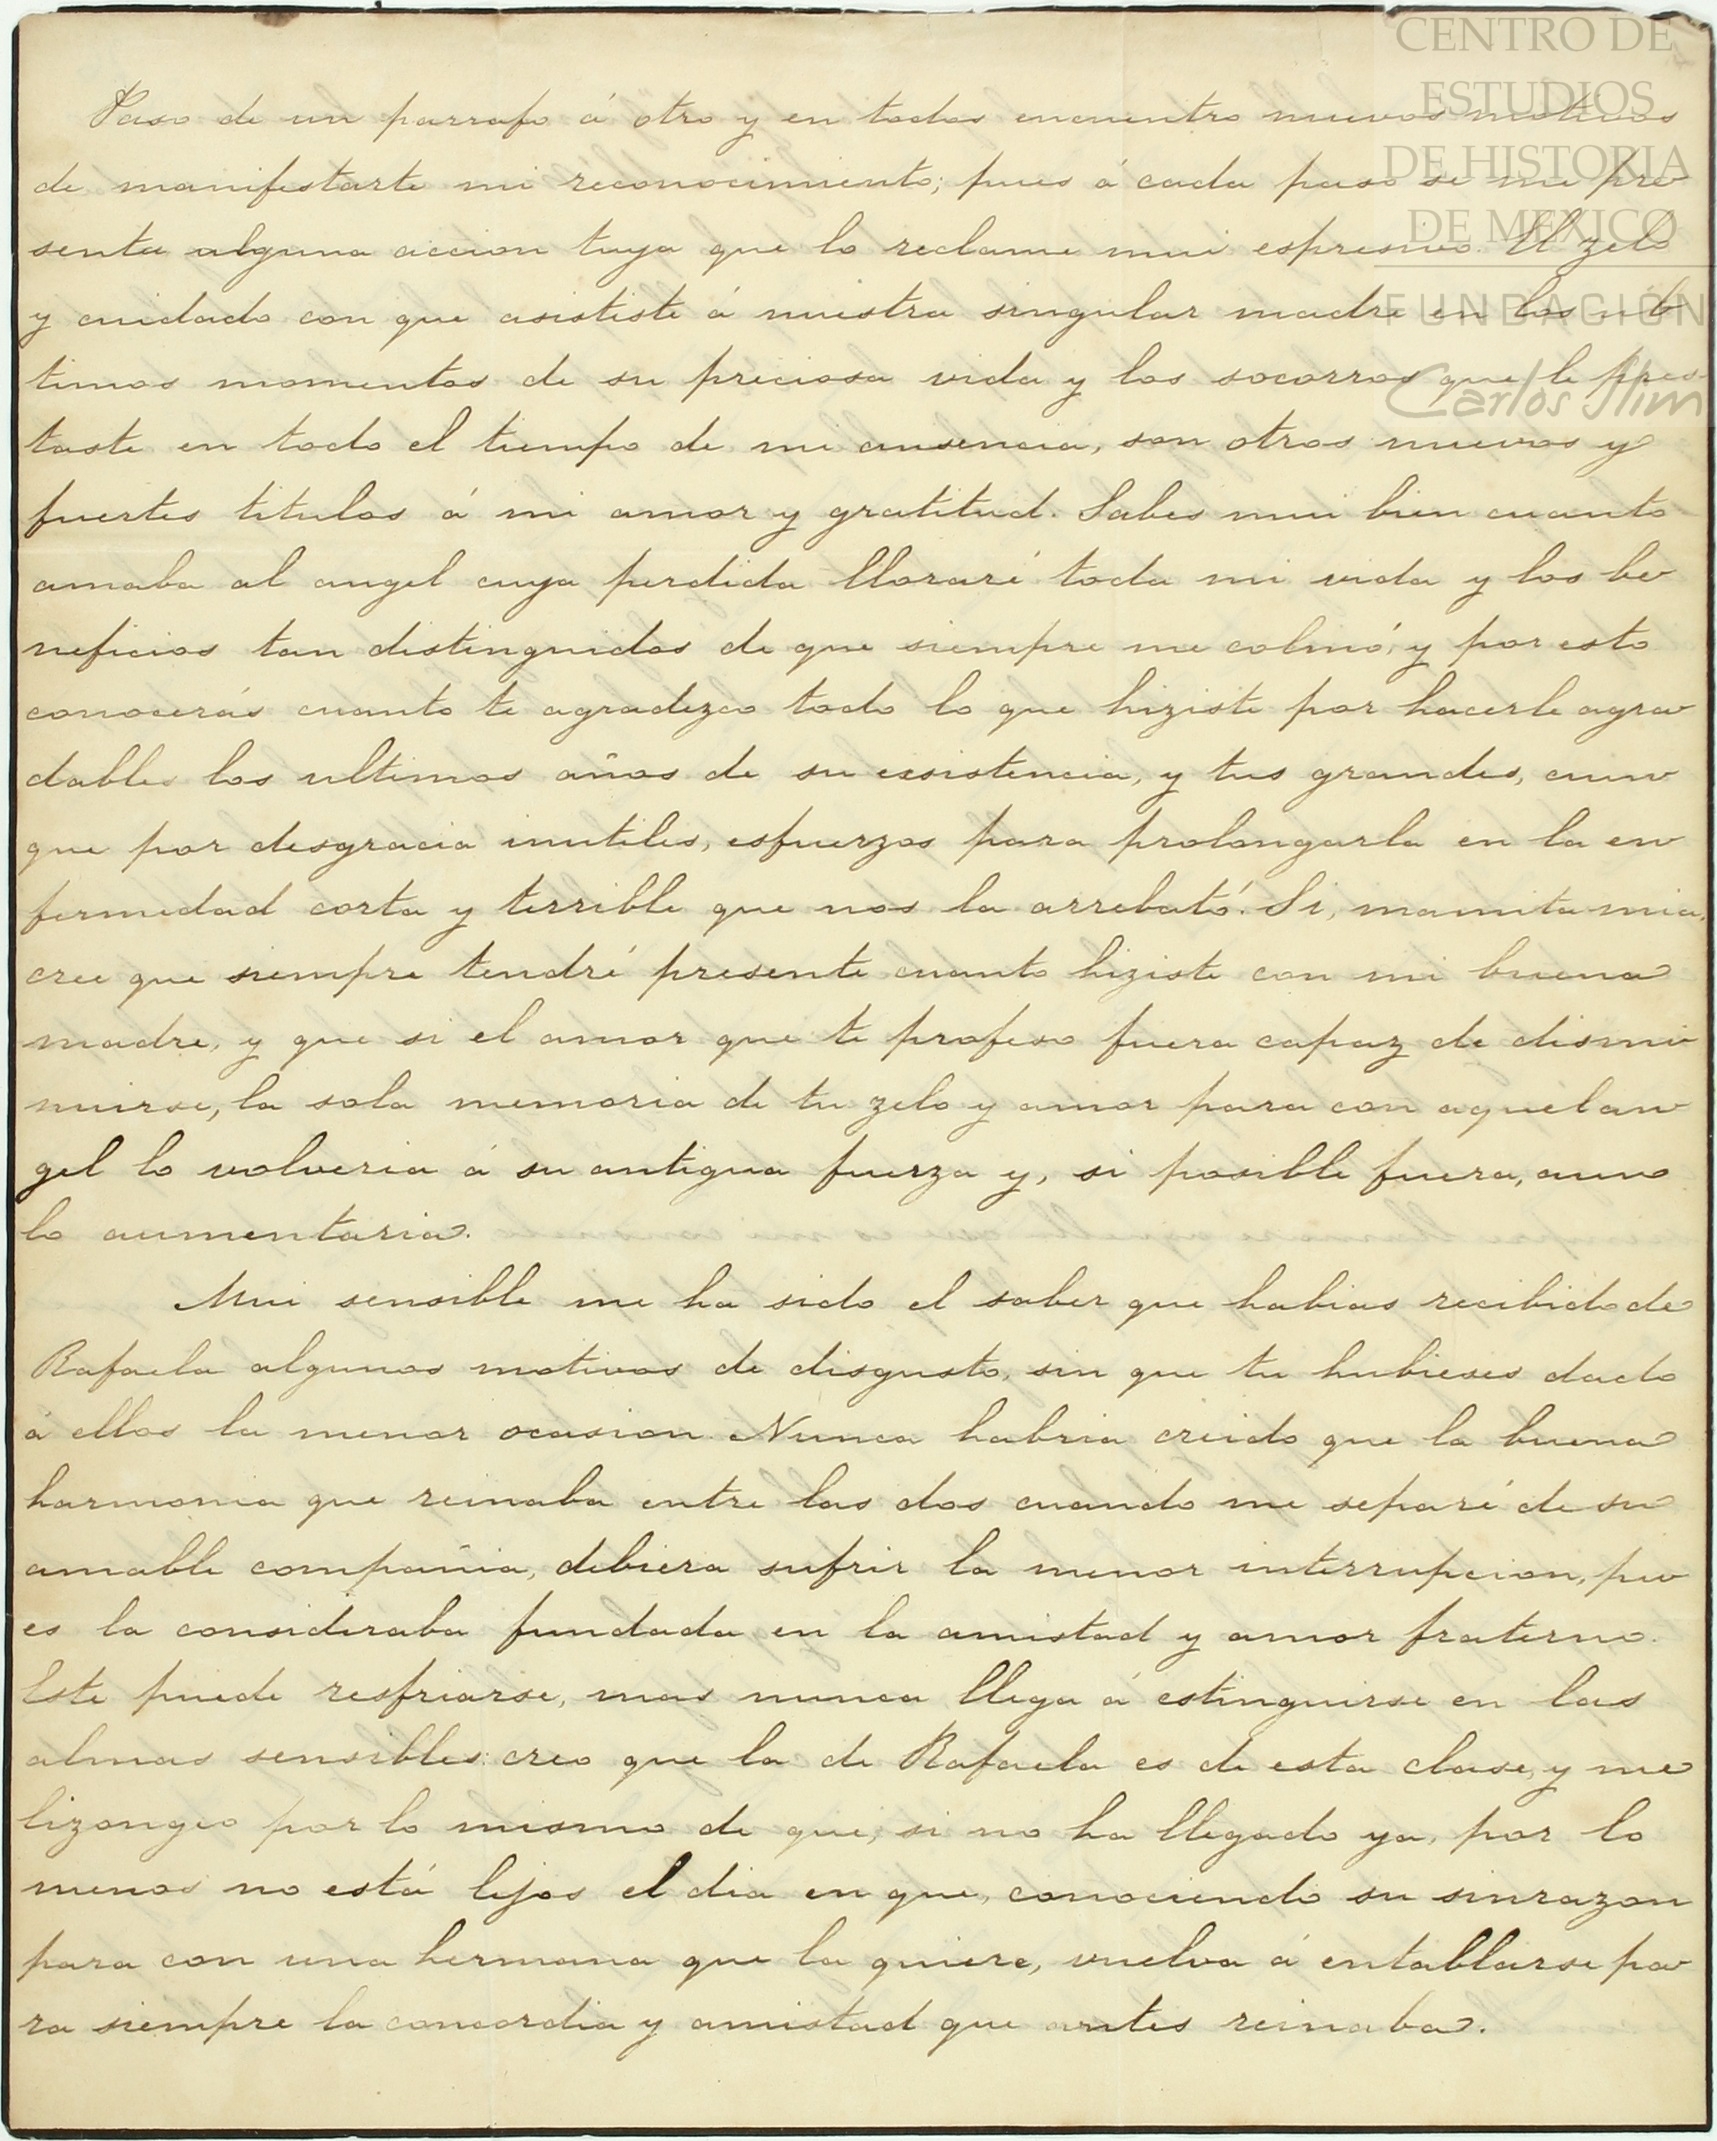 CENTRO DE
ESTUDIOS
DE HISTORIA
DE MEXICO
FUNDACIÓN
Carlos Slim
Paso de un parrafo á otro y en todos encuentro nuevos motivos
de manifestarte mi reconocimiento; pues á cada paso se me pre-
senta alguna accion tuya que lo reclame mui espresivo. El zelo
y cuidado con que asististe á nuestra singular madre en los ul-
timos momentos de su preciosa vida y los socorros que le pres-
taste en todo el tiempo de mi ausencia, son otros nuevos y
fuertes titulos á mi amor y gratitud. Sabes mui bien cuanto
amaba al angel cuya perdida lloraré toda mi vida y los be-
neficios tan distinguidos de que siempre me colmó; y por esto
conocerás cuanto te agradezco todo lo que hiziste por hacerle agra-
dables los ultimos años de su ecsistencia, y tus grandes, aun-
que por desgracia inutiles, esfuerzos para prolongarla en la en-
fermedad corta y terrible que nos la arrebató. Si, mamita mia,
cree que siempre tendré presente cuanto hiziste con mi buena
madre, y que si el amor que te profeso fuera capaz de dismi-
nuirse, la sola memoria de tu zelo y amor para con aquel an-
gel lo volveria á su antigua fuerza y, si posible fuera, aun
lo aumentaria.
Mui sensible me ha sido el saber que habias recibido de
Rafaela algunos motivos de disgusto, sin que tu hubieses dado
á ellos la menor ocasion. Nunca habria creido que la buena
harmonia que reinaba entre las dos cuando me separé de su
amable compañia, debiera sufrir la menor interrupcion, pu-
es la consideraba fundada en la amistad y amor fraterno.
Este puede resfriarse, mas nunca llega á estinguirse en las
almas sensibles: creo que la de Rafaela es de esta clase, y me
lizongeo por lo mismo de que, si no ha llegado ya, por lo
menos no está lejos el dia en que, conociendo su sinrazon
para con una hermana que la quiere, vuelva á entablarse pa-
ra siempre la concordia y amistad que antes reinaba.